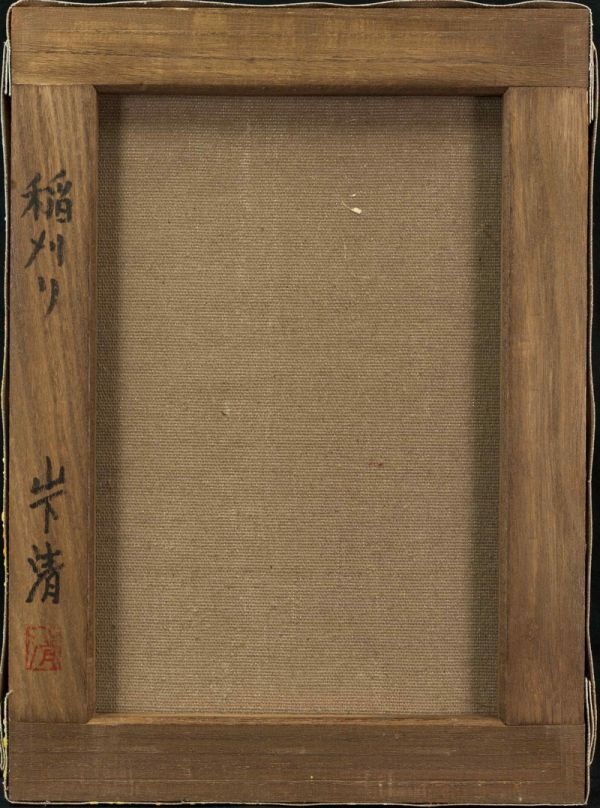 稲刈り
山下清
清